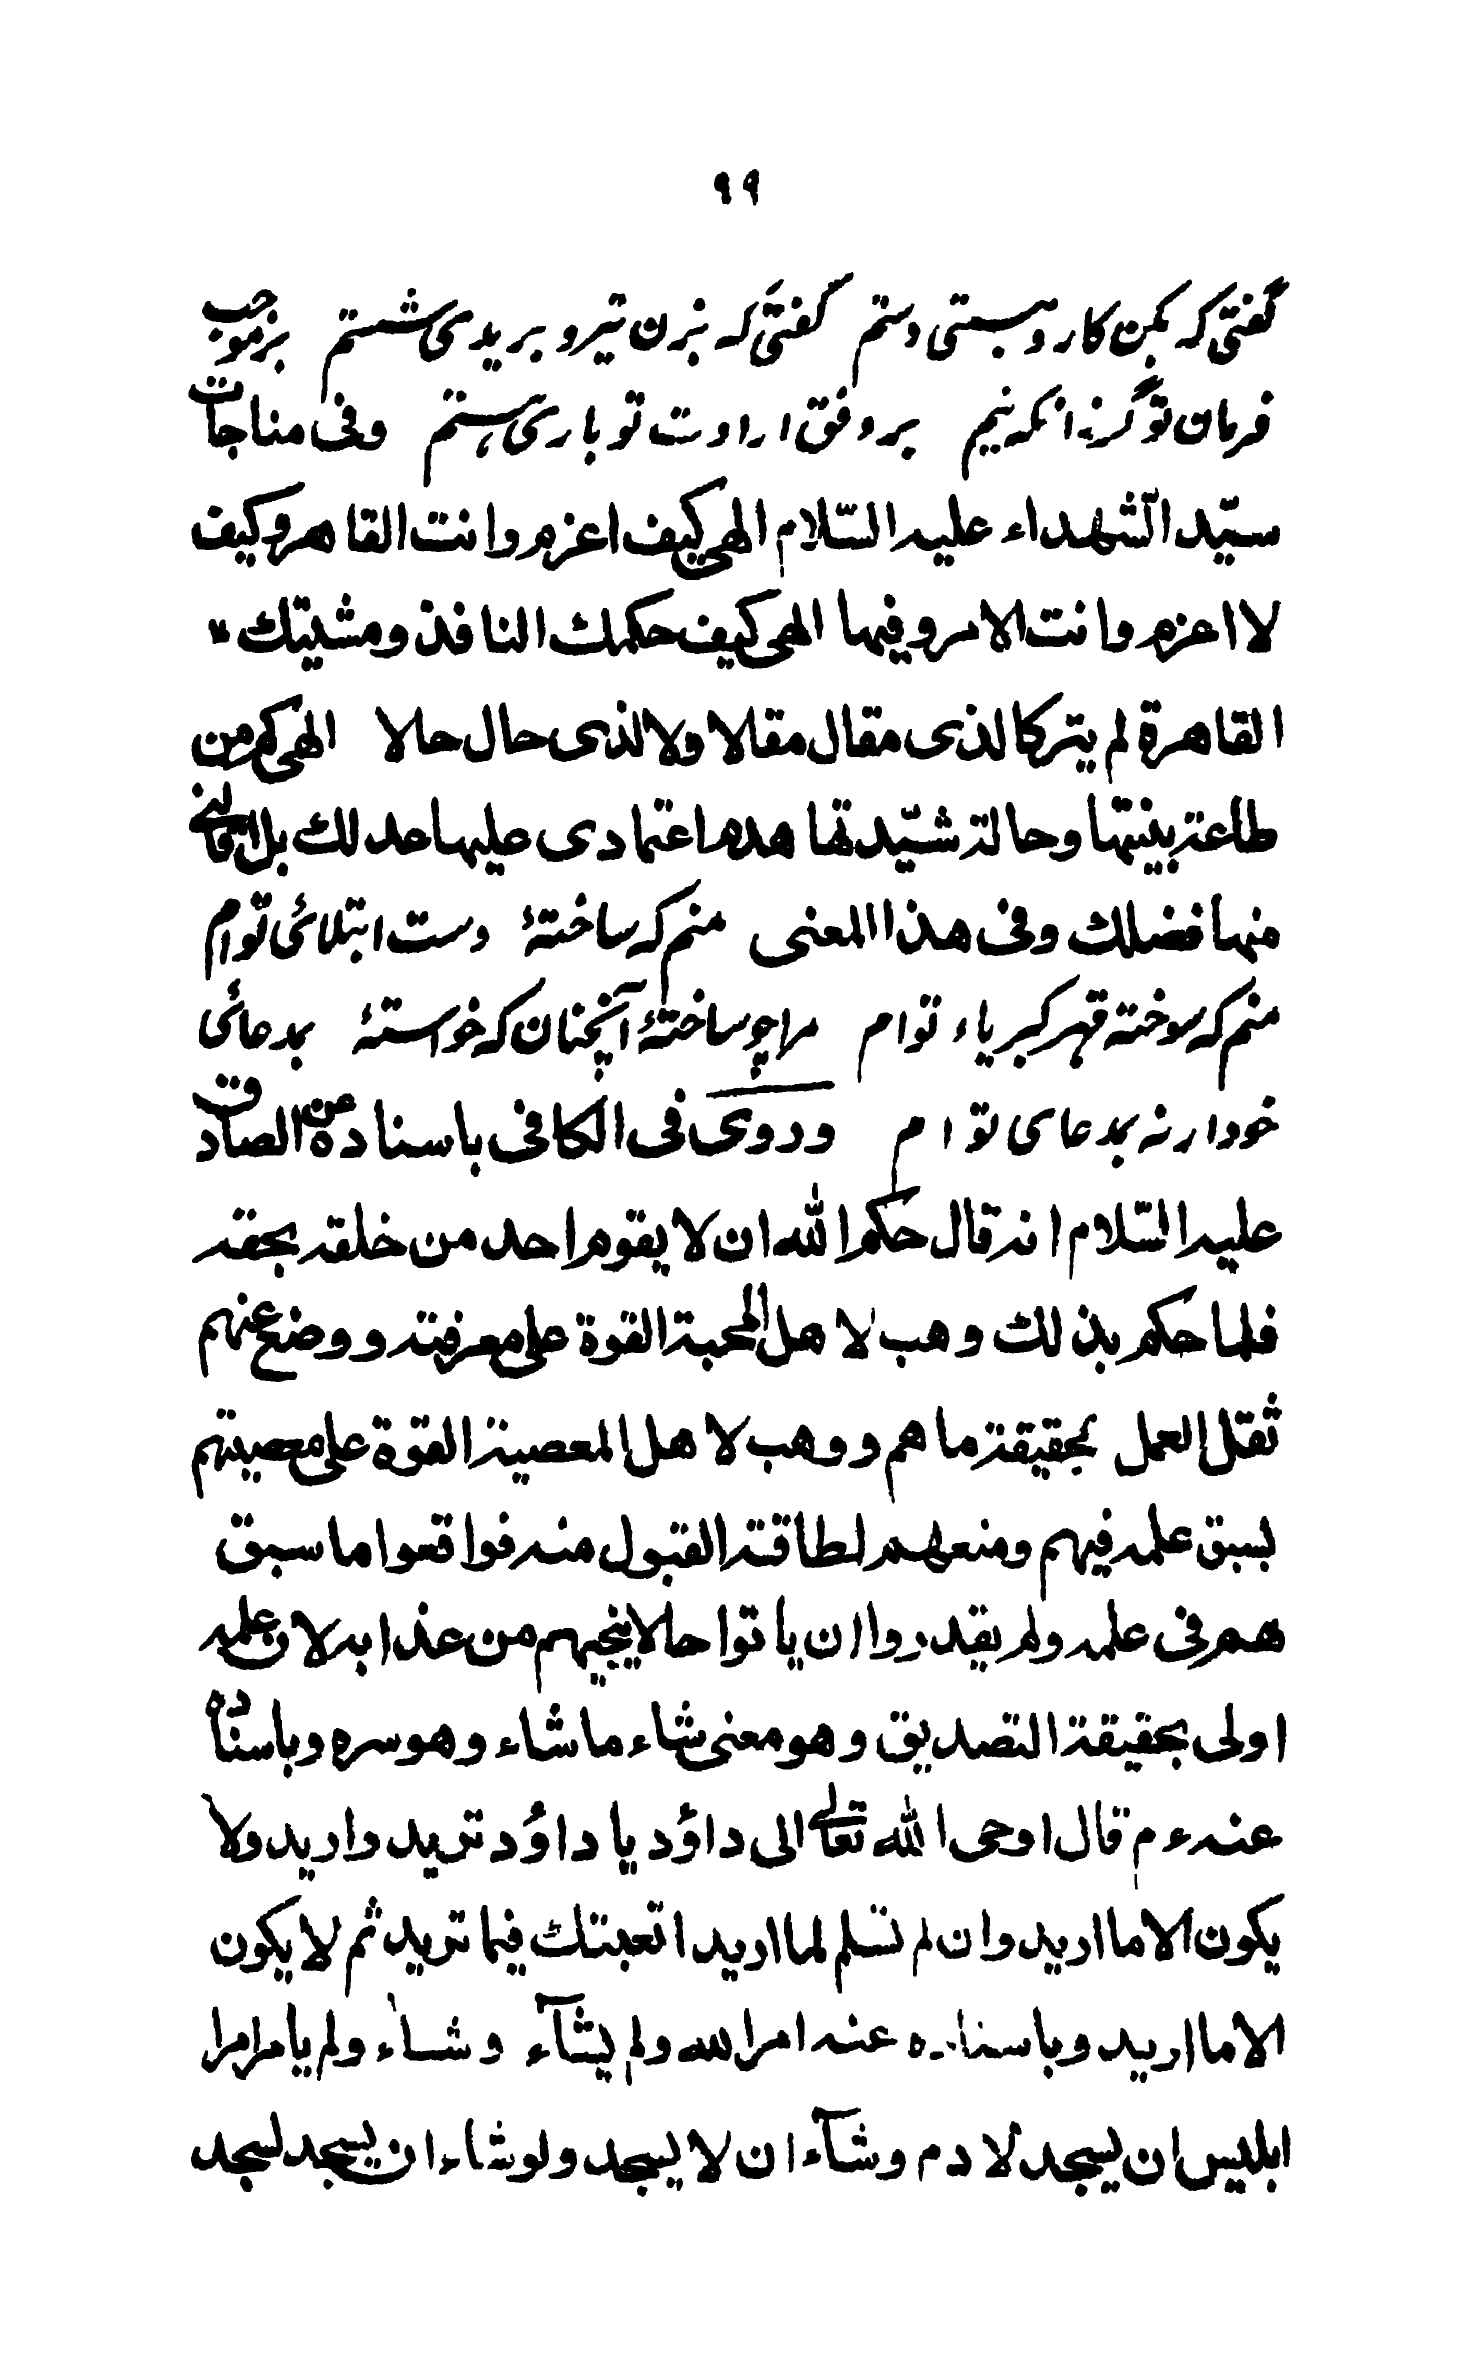 ٩٩
گفتی که بکن کار و ببستی دستم گفتی که بزن تیر و بریدی شستم بر موجب
فرمان تو گرزانکه نیم بر وفق ارادت تو باری هستم وفی مناجات
سيّد الشّهداء عليه السّلام الهی کيف اعزم وانت القاهر وکيف
لا اعزم وانت الامر وفيها الهی کيف حکمك النافذ ومشيتك
القاهرة لم يترکا لذی مقال مقالا ولا لذی حال حالا الهی کم من
طاعة بنيتها وحالة شيّدتها هدم اعتمادی عليها عدلك بل اقالنی
منها فضلك وفی هذا المعنی منم که ساختهٔ دست ابتلائی توام
منم که سوخته قهر کبریاء توام مرا چو ساختهٔ آنچنان که خواستهٔ بمدعائی
خود ار نه بمدعای توام وروی فی الکافی باسناده عن الصادق
عليه السّلام انه قال حکم الله ان لا يقوم احد من خلقه بحقه
فلما حکم بذلك وهب لاهل المحبة القوة علی معرفته ووضع عنهم
ثقل العمل بحقيقة ما هم ووهب لاهل المعصية القوة علی معصيتهم
بسبق علمه فيهم ومنعهم لطاقة القبول منه فواقعوا ما سبق
هم فی علمه ولم يقدروا ان ياتوا حالا ينجيهم من عذابه لان علمه
اولی بحقيقة التصديق وهو معنی شاء ما شاء وهو سره وباسناده
عنه ءم قال اوحی الله تعالی الی داؤد يا داؤد تريد واريد ولا
يکون الا ما اريد وان لم تسلم لما اريد اتعبتك فيما تريد ثم لا يکون
الا ما اريد وباسناده عنه امر الله ولم يشآء وشاء ولم يامر امر
ابليس ان يسجد لادم وشآء ان لا يسجد ولو شاء ان يسجد لسجد